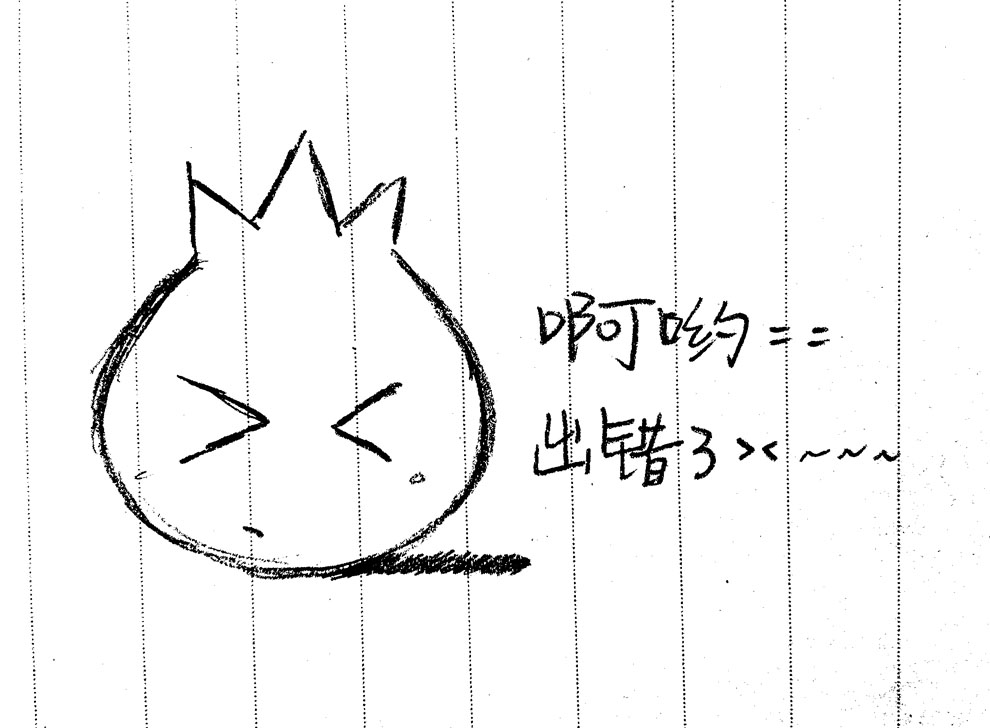 啊呦哟==
出错了><~~~